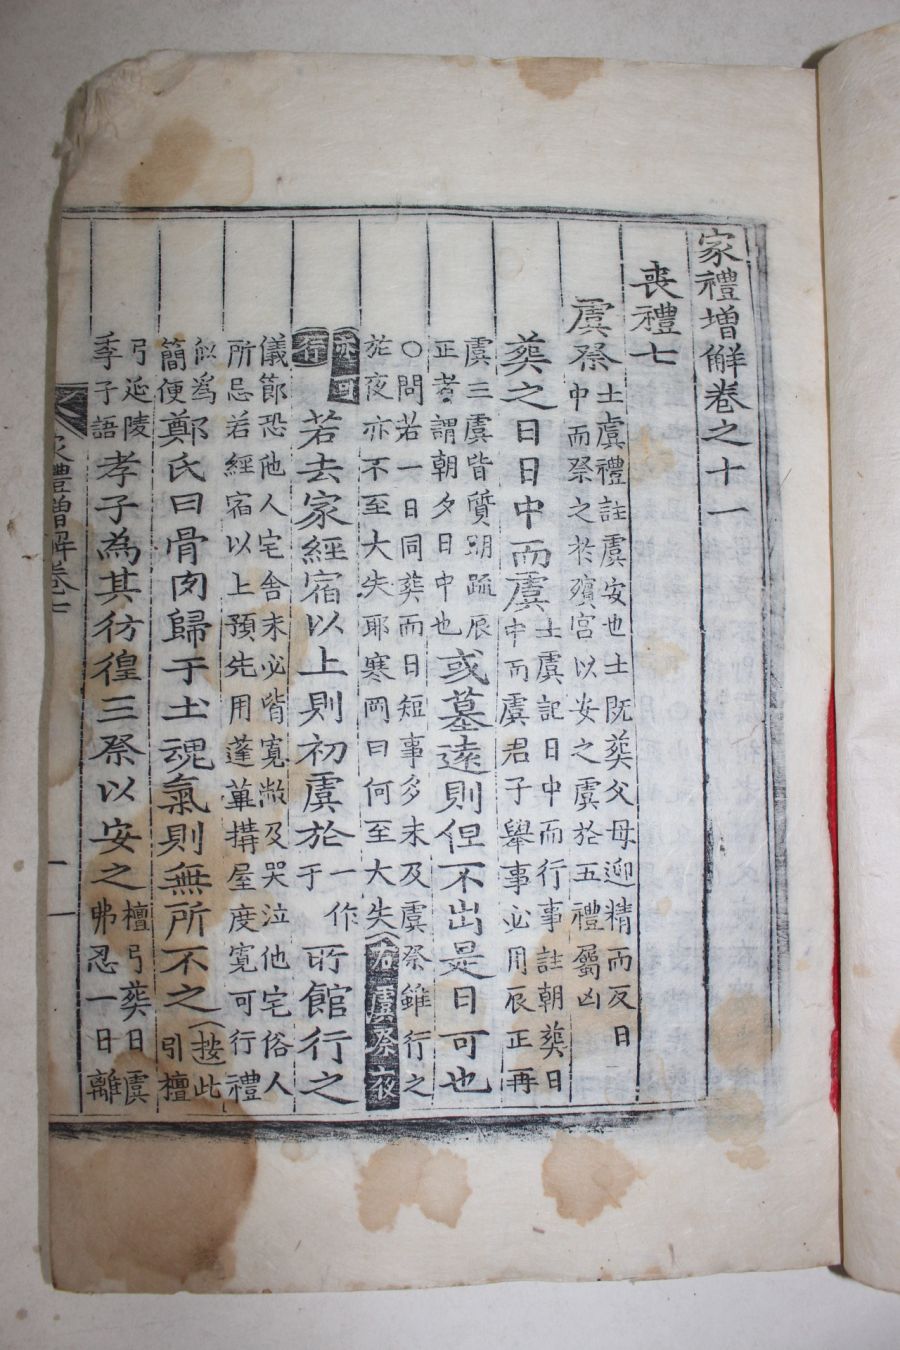 家禮增解卷之十一
喪禮七
虞祭士虞禮註虞安也士旣葬父母迎精而反日
中而祭之於殯宮以安之虞於五禮屬凶
葬之日日中而虞士虞記日中而行事註朝葬日
中而虞君子擧事必用辰正再
虞三虞皆質明疏辰
正者謂朝夕日中也或墓遠則但不出是日可也
〇問若一日同葬而日短事多未及虞祭雖行之
於夜亦不至大失耶寒岡曰何至大失右虞祭夜
亦可
行若去家經宿以上則初虞於一作于所館行之
儀節恐他人宅舍未必皆寬敞及哭泣他宅俗人
所忌若經宿以上預先用蓬蓽搆屋度寬可行禮
似爲
簡便鄭氏曰骨肉歸于土魂氣則無所不之按此
引檀
弓延陵
季子語孝子為其彷徨三祭以安之檀弓葬日虞
弗忍一日離
家禮增解卷十
一